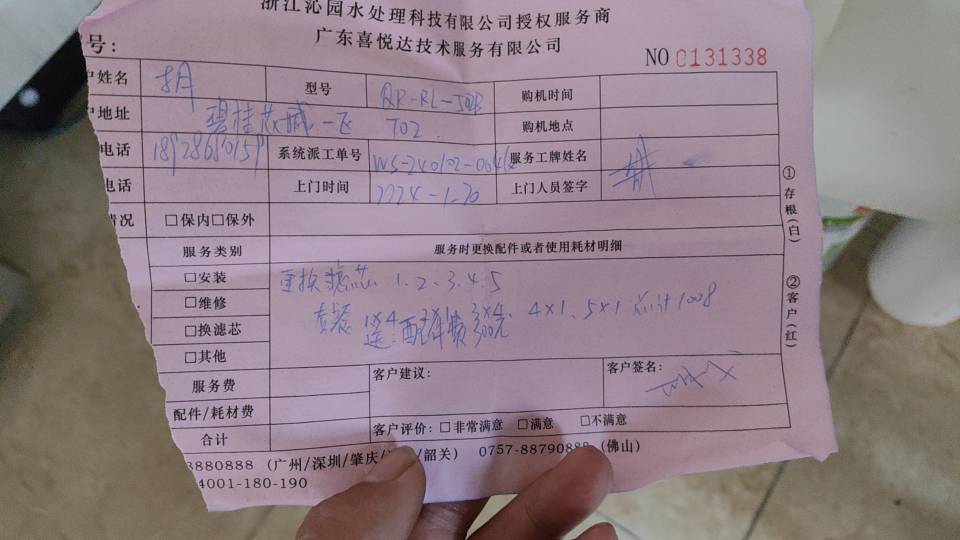 浙江沁园水处理科技有限公司授权服务商
广东喜悦达技术服务有限公司
号: NO 0131338
户姓名 胡 型号 QR-RL-501B 购机时间
户地址 碧桂花城一飞 T02 购机地点
电话 系统派工单号 WS-240102-0044 服务工牌姓名
电话 上门时间 2024-1-20 上门人员签字
情况 □保内□保外
服务类别 服务时更换配件或者使用耗材明细
□安装 更换滤芯 1.2.3.4.5
□维修 套装 1×4 2×4 3×4. 4×1. 5×1 总计1008
□换滤芯 送:配件费300元
□其他
服务费 客户建议: 客户签名:
配件/耗材费
合计 客户评价: □非常满意 □满意 □不满意
3880888 (广州/深圳/肇庆/ /韶关) 0757-88790888 (佛山)
4001-180-190
①存根(白)
②客户(红)